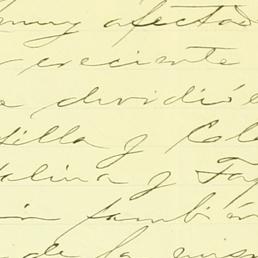 muy afectad
creciente
e dividié
silla y Cle
talina y Fa
ión también
de la mism